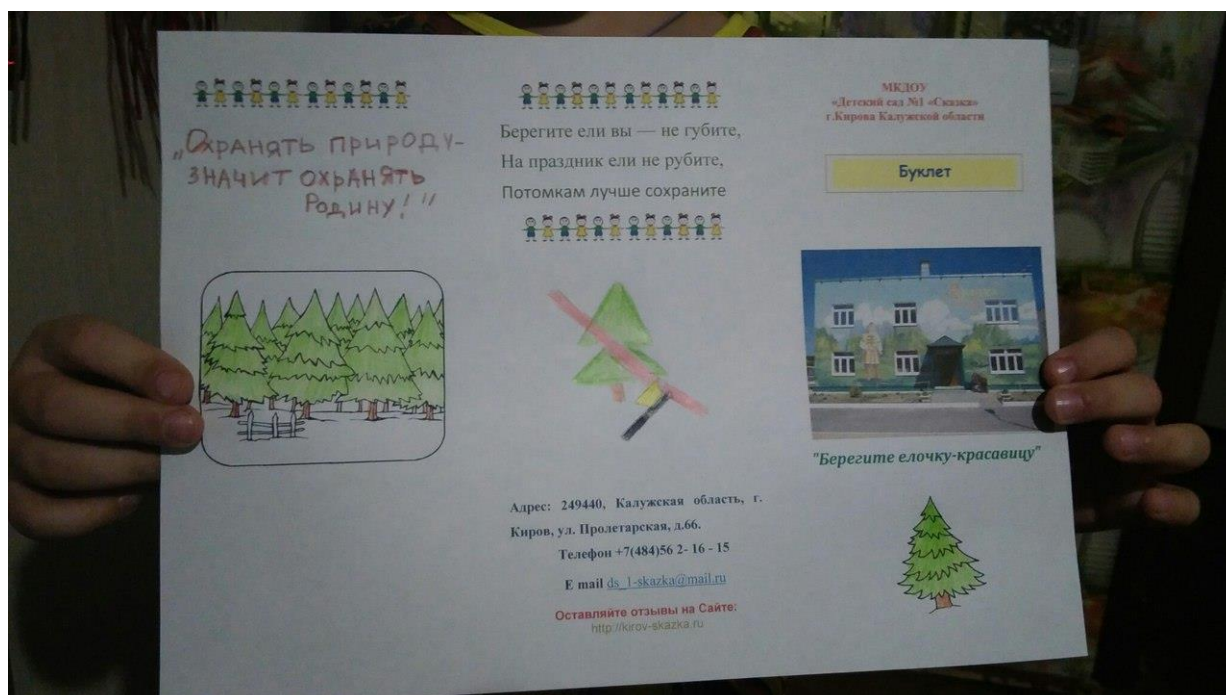 „Охранять природу-
значит охранять
Родину!"
Берегите ели вы — не губите,
На праздник ели не рубите,
Потомкам лучше сохраните
Адрес: 249440, Калужская область, г.
Киров, ул. Пролетарская, д.66.
Телефон +7(484)56 2- 16 - 15
E mail ds_1-skazka@mail.ru
Оставляйте отзывы на Сайте:
http://kirov-skazka.ru
МКДОУ
«Детский сад №1 «Сказка»
г.Кирова Калужской области
Буклет
"Берегите елочку-красавицу"